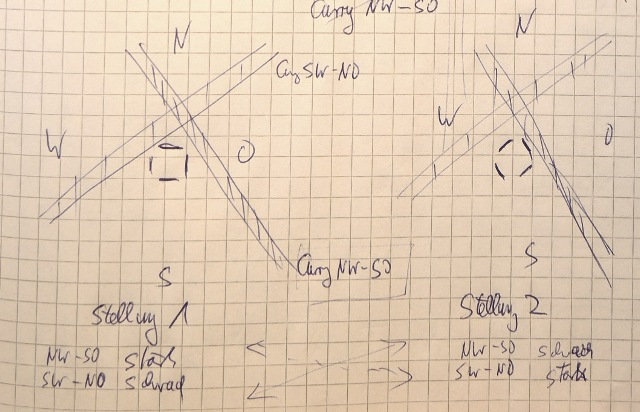 Curry NW-SO
N
N
Cu SW-NO
W
W
O
O
S
S
Curry NW-SO
Stellung 1
Stellung 2
NW-SO stark
SW-NO schwach
NW-SO schwach
SW-NO stark